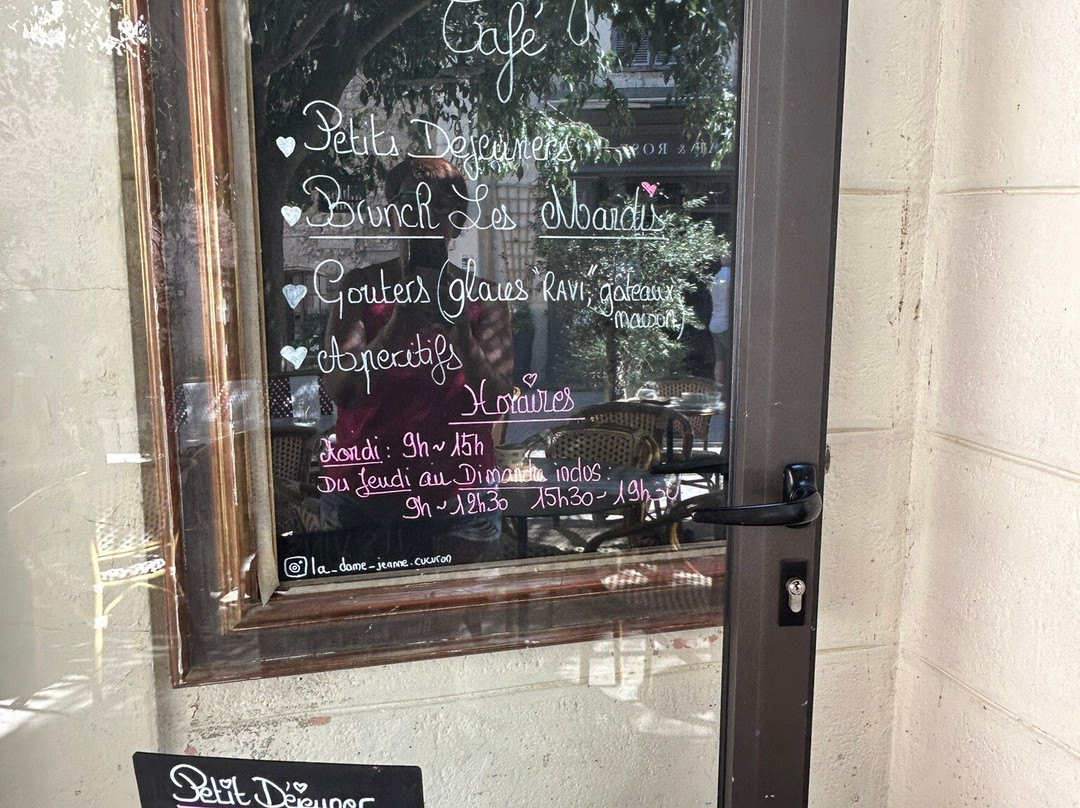 Café
Petits Dejeuners
Brunch Les Mardis
Gouters (glaces "RAVI", gâteaux
maison)
Aperitifs
Horaires
Mardi : 9h ~ 15h
Du Jeudi au Dimanche inclus :
9h ~ 12h30 15h30 - 19h30
la_dame_jeanne.cucuron
Petit Déjeuner